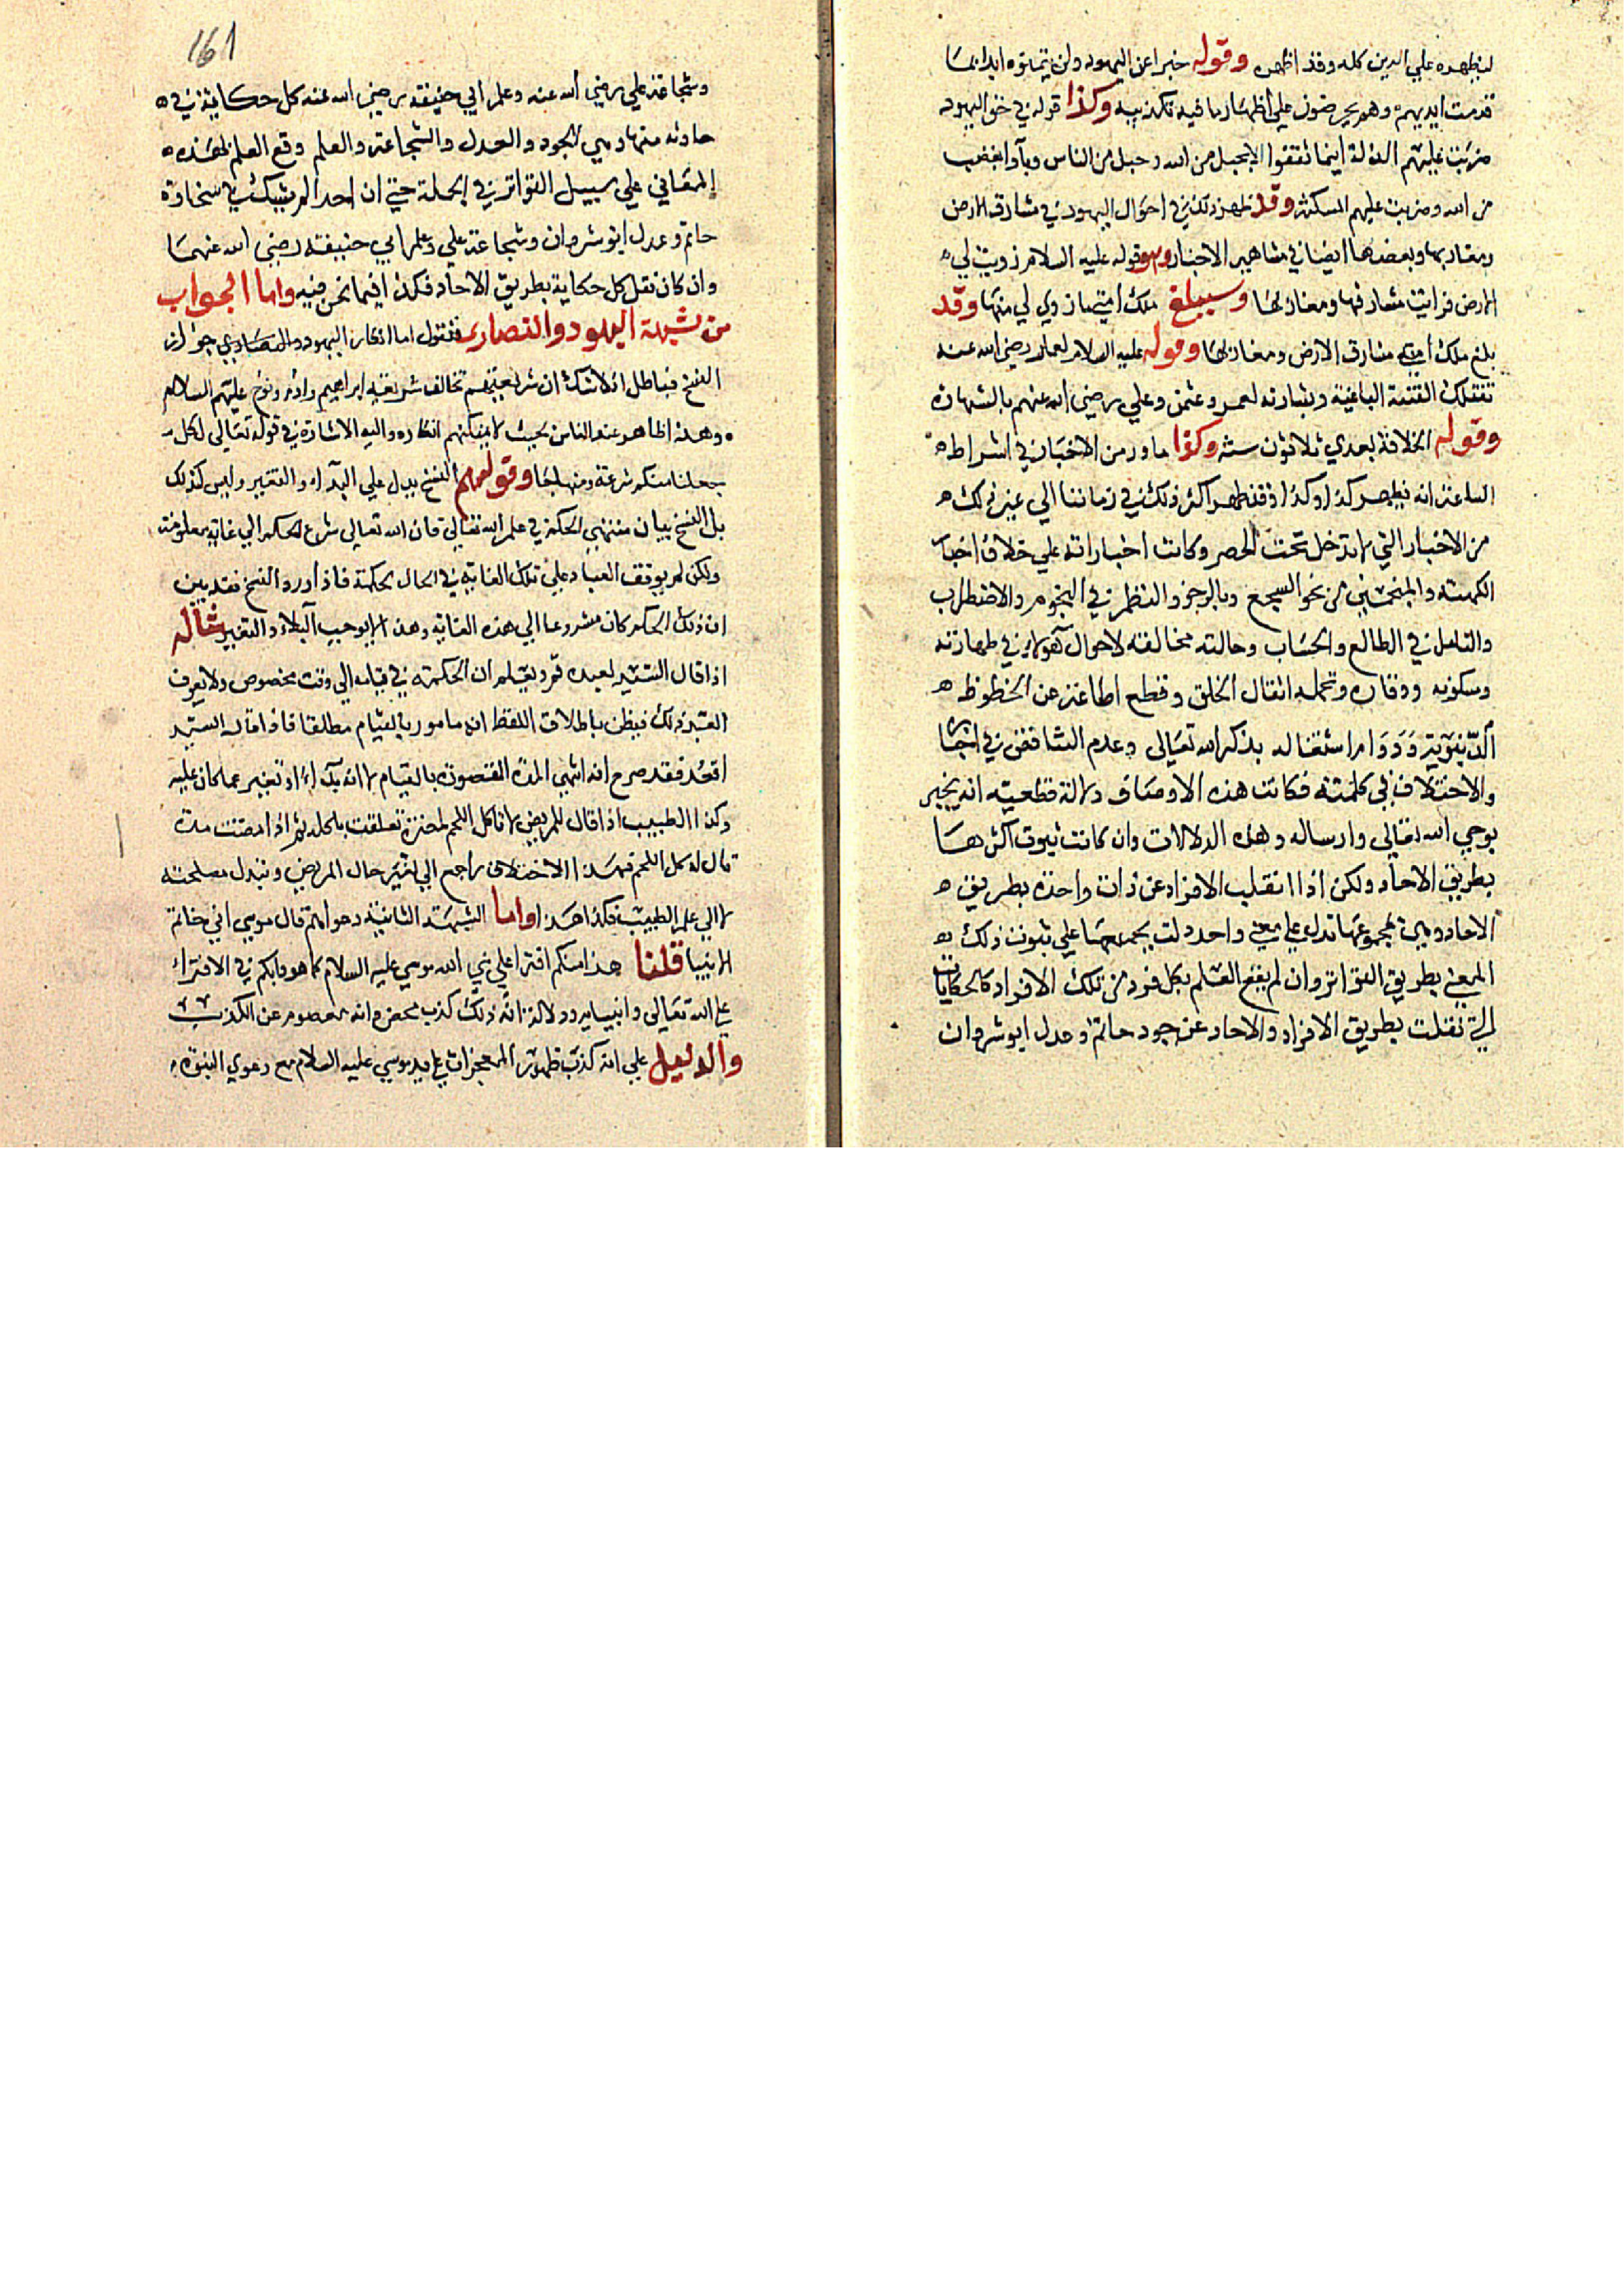 ليظهره علي الدين كله وقد اظهره وقوله خبرا عن اليهود ولن يتمنوه ابدا بما
قدمت ايديهم وهم يحرضون علي اظهار ما فيه تكذيبه وكذا قوله في حق اليهود
ضربت عليهم الذلة اينما ثقفوا الا بحبل من الله وحبل من الناس وبآوا بغضب
من الله وضربت عليهم المسكنة وقد ظهر ذلك في احوال اليهود في مشارق الارض
ومغاربها وبعضها ايضا في مشاهير الاخبار وهو قوله عليه السلام زويت لي
الارض فرايت مشارقها ومغاربها وسيبلغ ملك امتي ما زوي لي منها وقد
بلغ ملك امته مشارق الارض ومغاربها وقوله عليه السلام لعمار رضي الله عنه
تقتلك الفئة الباغية وبشارته لعمر وعثمن وعلي رضي الله عنهم بالشهادة
وقوله الخلافة بعدي ثلاثون سنة وكذا ما ورد من الاخبار في اشراط
الساعة انه يظهر كذا وكذا وقد ظهر اكثر ذلك في زماننا الي غير ذلك
من الاخبار التي لا تدخل تحت الحصر وكانت اخباراته علي خلاف اخبار
الكهنة والمنجمين من نحو السجع وبالرجز والنظر في النجوم والاضطراب
والتامل في الطالع والحساب وحالته مخالفة لاحوال هولاء في طهارته
وسكونه ووقاره وتحمله اثقال الخلق وقطع اطماعه عن الحظوظ
الدنيوية ودوام اشتغاله بذكر الله تعالى وعدم التناقض في اخباره
والاختلاف في كلمته فكانت هذه الاوصاف دلالة قطعية انه يخبر
بوحي الله تعالى وارساله وهذه الدلالات وان كانت ثبوت اكثرها
بطريق الاحاد ولكن اذا انقلب الافراد عن ذات واحدة بطريق
الاحاد وهي بمجموعها تدل علي معني واحد دلت بجمعها علي ثبوت ذلك
المعني بطريق التواتر وان لم يقع العلم بكل فرد من تلك الافراد كالحكايات
التي نقلت بطريق الافراد والاحاد عن جود حاتم وعدل انوشروان
161
وشجاعة علي رضي الله عنه وعلم ابي حنيفة رضي الله عنه كل حكاية في
حادثة منها وهي الجود والعدل والشجاعة والعلم وقع العلم لهذه
المعاني علي سبيل التواتر في الجملة حتي ان احدا لم يشك في سخاوة
حاتم وعدل انوشروان وشجاعة علي وعلم ابي حنيفة رضي الله عنهما
وان كان نقل كل حكاية بطريق الاحاد فكذا فيما نحن فيه واما الجواب
من شبهة اليهود والنصارى فنقول اما انكار اليهود والنصاري جواز
النسخ فباطل اذ لا شك ان شريعتهم تخالف شريعة ابراهيم وادم ونوح عليهم السلام
وهذا ظاهر عند الناس بحيث لا يمكنهم انكاره واليه الاشارة في قوله تعالى لكل
جعلنا منكم شرعة ومنهاجا وقولهم النسخ يدل علي البداء والتغيير وليس كذلك
بل النسخ بيان منتهي الحكم في علم الله تعالى فان الله تعالى شرع الحكم الي غاية معلومة
ولكن لم يوقف العباد علي تلك الغاية في الحال لحكمة فاذا ورد النسخ فقد تبين
ان ذلك الحكم كان مشروعا الي هذه الغاية وهذا لا يوجب البداء والتغيير مثاله
اذا قال السيد لعبده قم ويعلم ان الحكمة في قيامه الي وقت مخصوص ولا يعرف
العبد ذلك فيظن باطلاق اللفظ انه مامور بالقيام مطلقا فاذا قال له السيد
اقعد فقد صرح انه انتهي المدة المقصودة بالقيام لا انه بداء او تغيير عما كان عليه
وكذا الطبيب اذا قال للمريض لا تاكل اللحم لمضرة تعلقت باكله ثم اذا مضت مدة
قال له كل اللحم فهذا الاختلاف راجع الي تغير حال المريض وتبدل مصلحته
لا الي علم الطبيب فكذا هذا واما الشبهة الثانية دعواهم قال موسي اني خاتم
الانبيا قلنا هذا منكم افترا علي نبي الله موسي عليه السلام كما هو دابكم في الافتراء
علي الله تعالى وانبيايه ودلالة انه ذلك كذب محض وانه معصوم عن الكذب
والدليل علي انه كذب ظهور المعجزات علي يد موسي عليه السلام مع دعوي النبوة